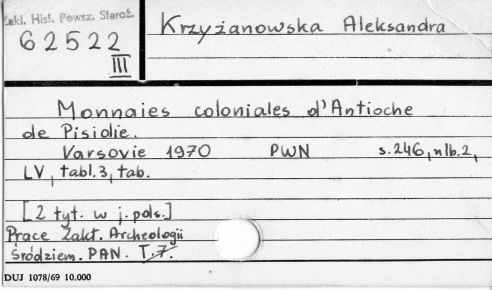 Zakł. Hist. Powsz. Staroż.
62522
III
Krzyżanowska Aleksandra
Monnaies coloniales d'Antioche
de Pisidie.
Varsovie 1970 PWN s.246, nlb.2,
LV, tabl.3, tab.
[2 tyt. w j. pols.]
Prace Zakł. Archeologii
Śródziem. PAN. T.7.
DUJ 1078/69 10.000